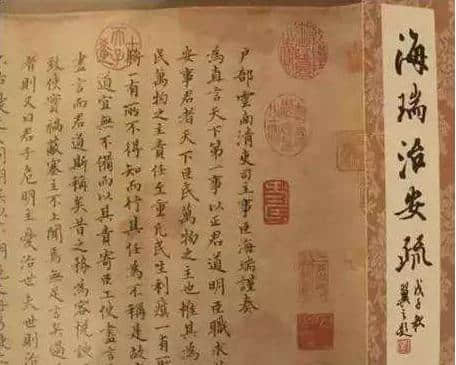 海瑞治安疏
戊子秋
戶部雲南清吏司主事臣海瑞謹奏
為直言天下第一事以正君道明臣職求
安事君者天下臣民萬物之主也惟其為
民萬物之主責任至重凡民生利瘼一有
一有所不得知而行其任為不稱是故
道宜無不備而以其責寄臣工使盡言
盡言而君道斯稱矣昔之務為容悅諛
致使實禍蔽塞主不上聞焉無足言矣過
者則又曰君子危明主憂治世夫世則治